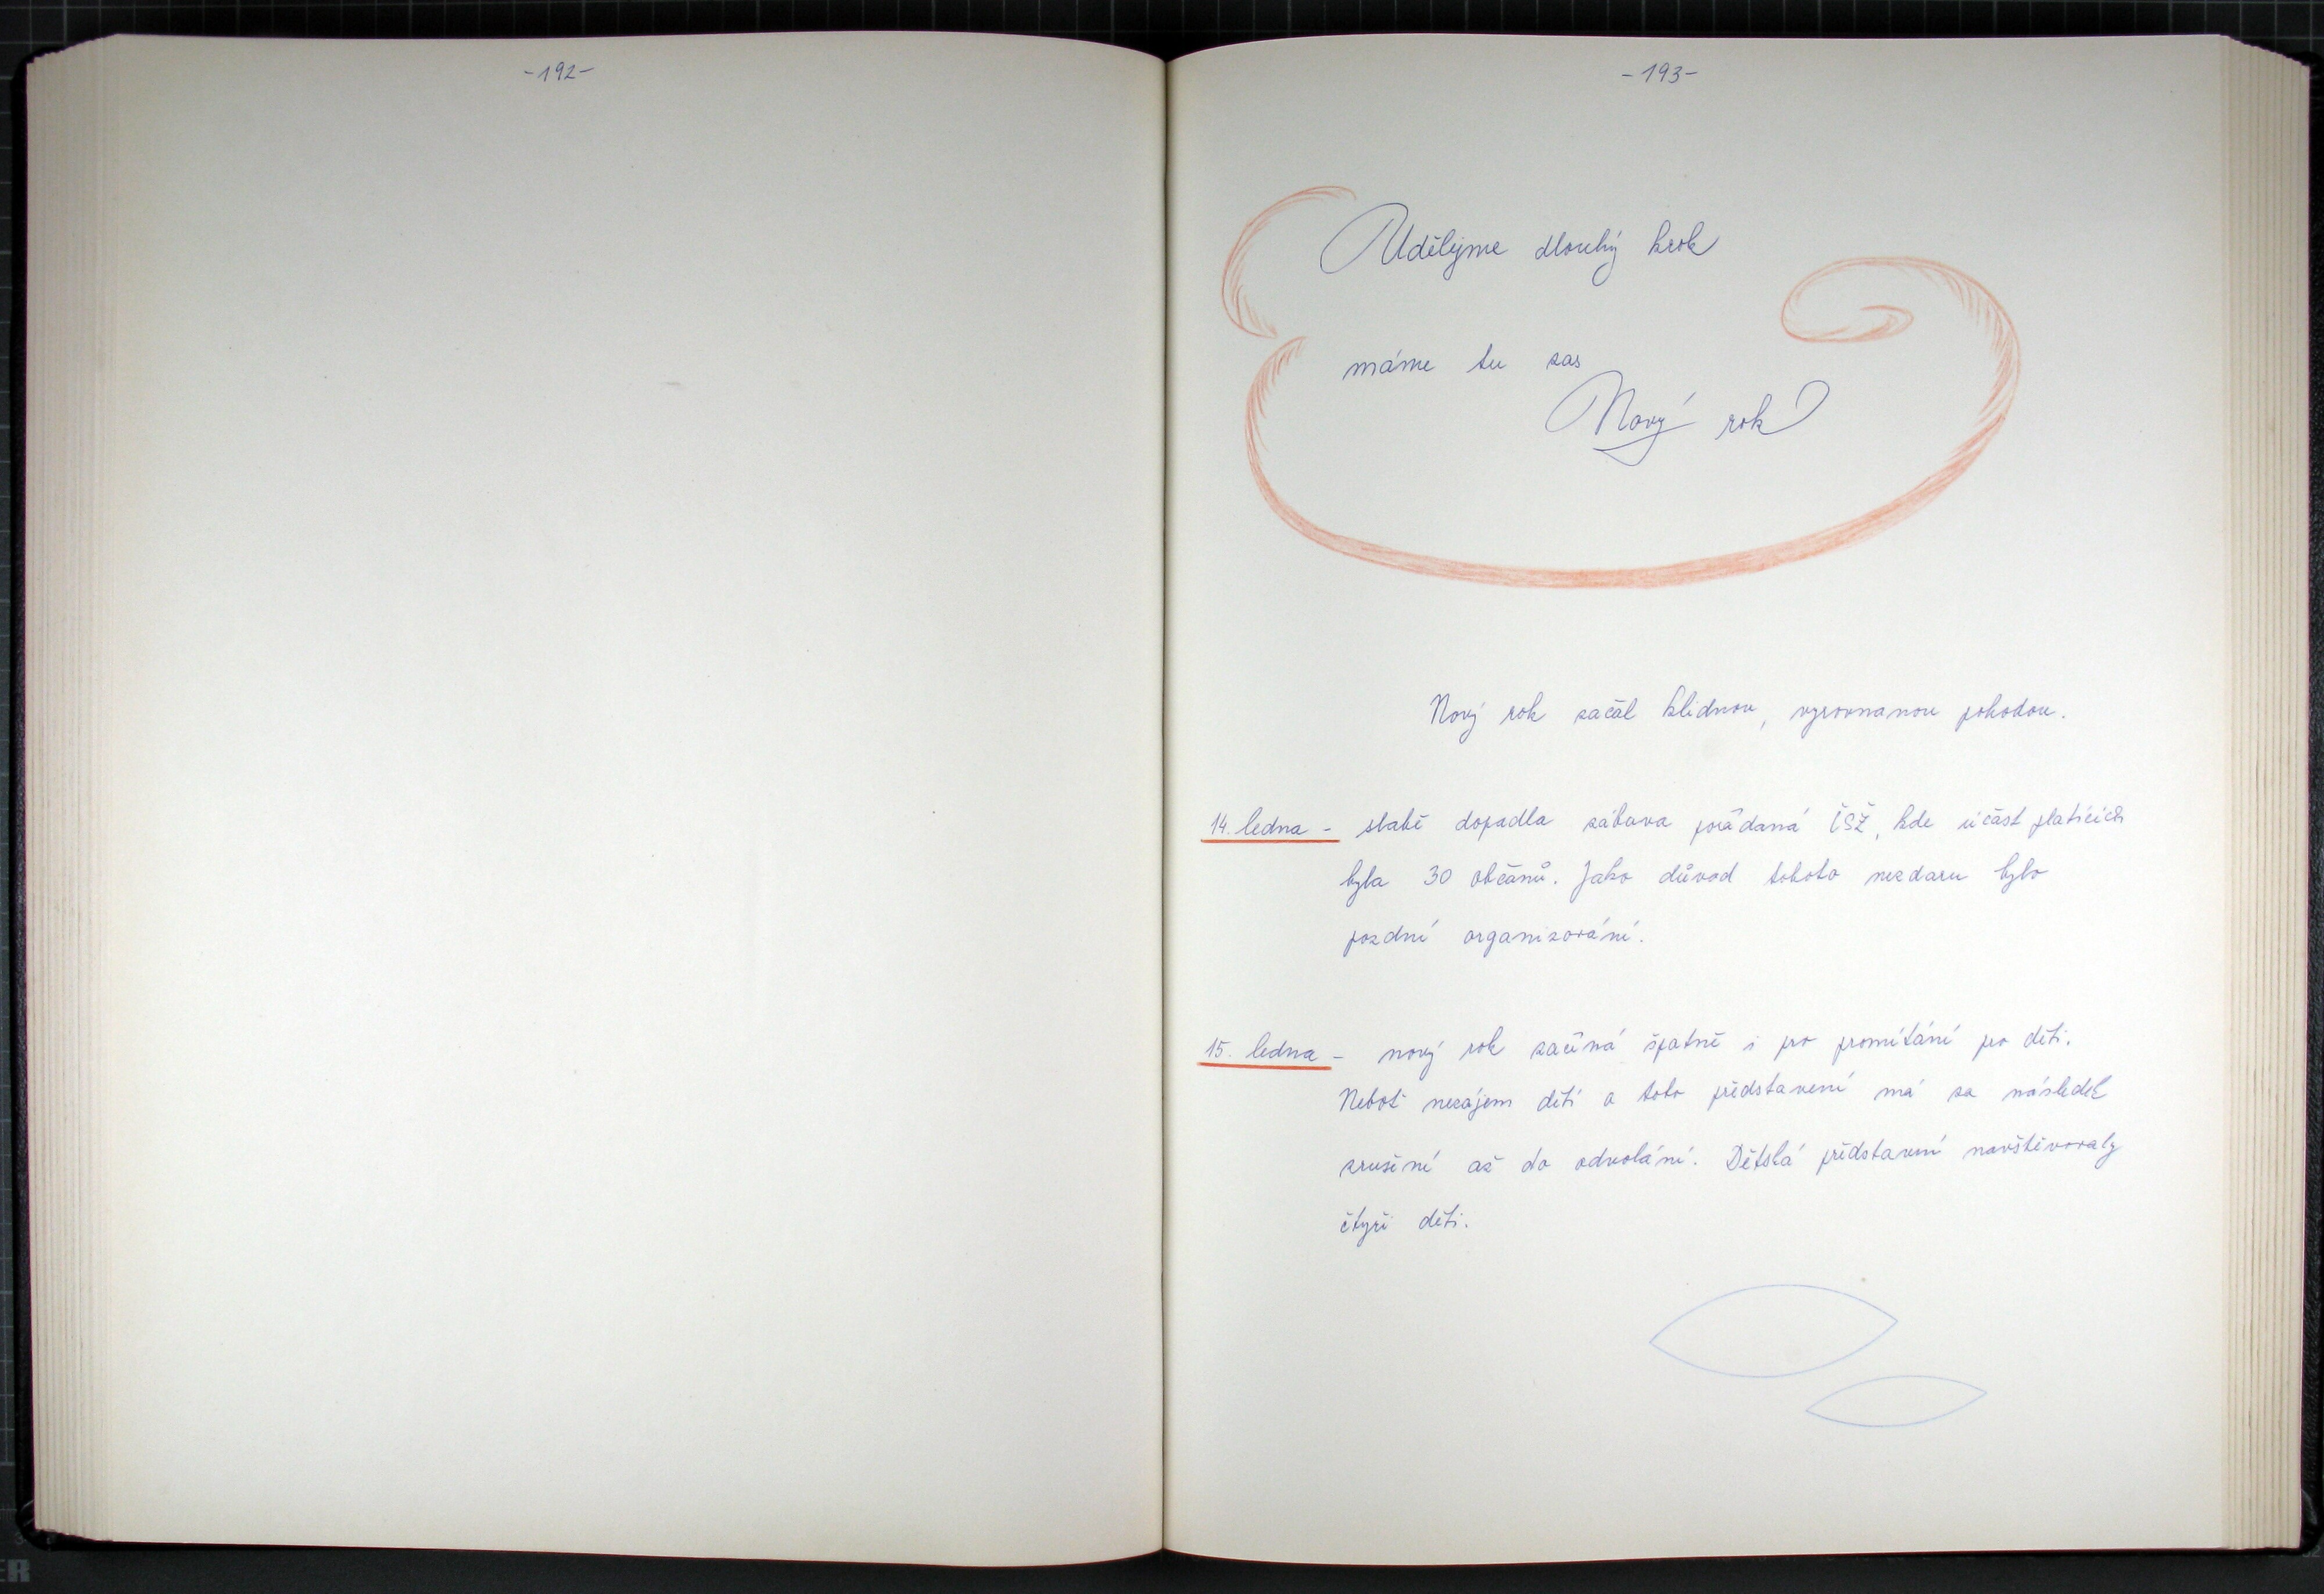 -192-
-193-
Udělejme dlouhý krok
máme tu zas
Nový rok
Nový rok začal klidnou, vyrovnanou pohodou.
14. ledna - slabě dopadla zábava pořádaná ČSŽ, kde účast platících
byla 30 občanů. Jako důvod tohoto nezdaru bylo
pozdní organizování.
15. ledna - nový rok začíná špatně i pro promítání pro děti.
Neboť nezájem dětí o toto představení má za následek
zrušení až do odvolání. Dětská představení navštěvovaly
čtyři děti.